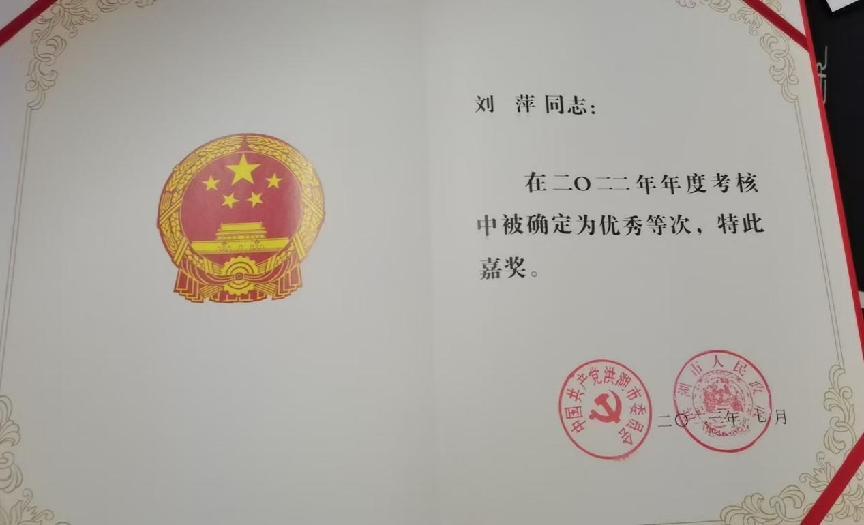 刘 萍 同志：
在二〇二二年年度考核
中被确定为优秀等次，特此
嘉奖。
中国共产党洪湖市委员会
湖市人民
二〇二三年七月